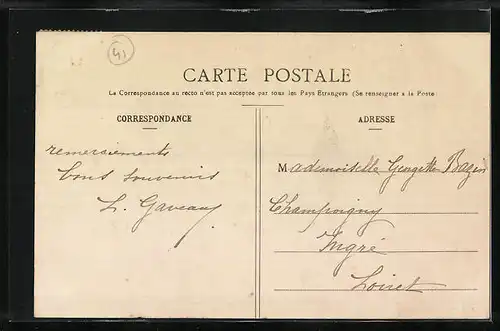 41
CARTE POSTALE
La Correspondance au recto n'est pas acceptée par tous les Pays Etrangers (Se renseigner à la Poste)
CORRESPONDANCE
remerciements
bons souvenirs
L. Gaveau
ADRESSE
Mademoiselle Georgette Bazin
Champoigny
Ingré
Loiret